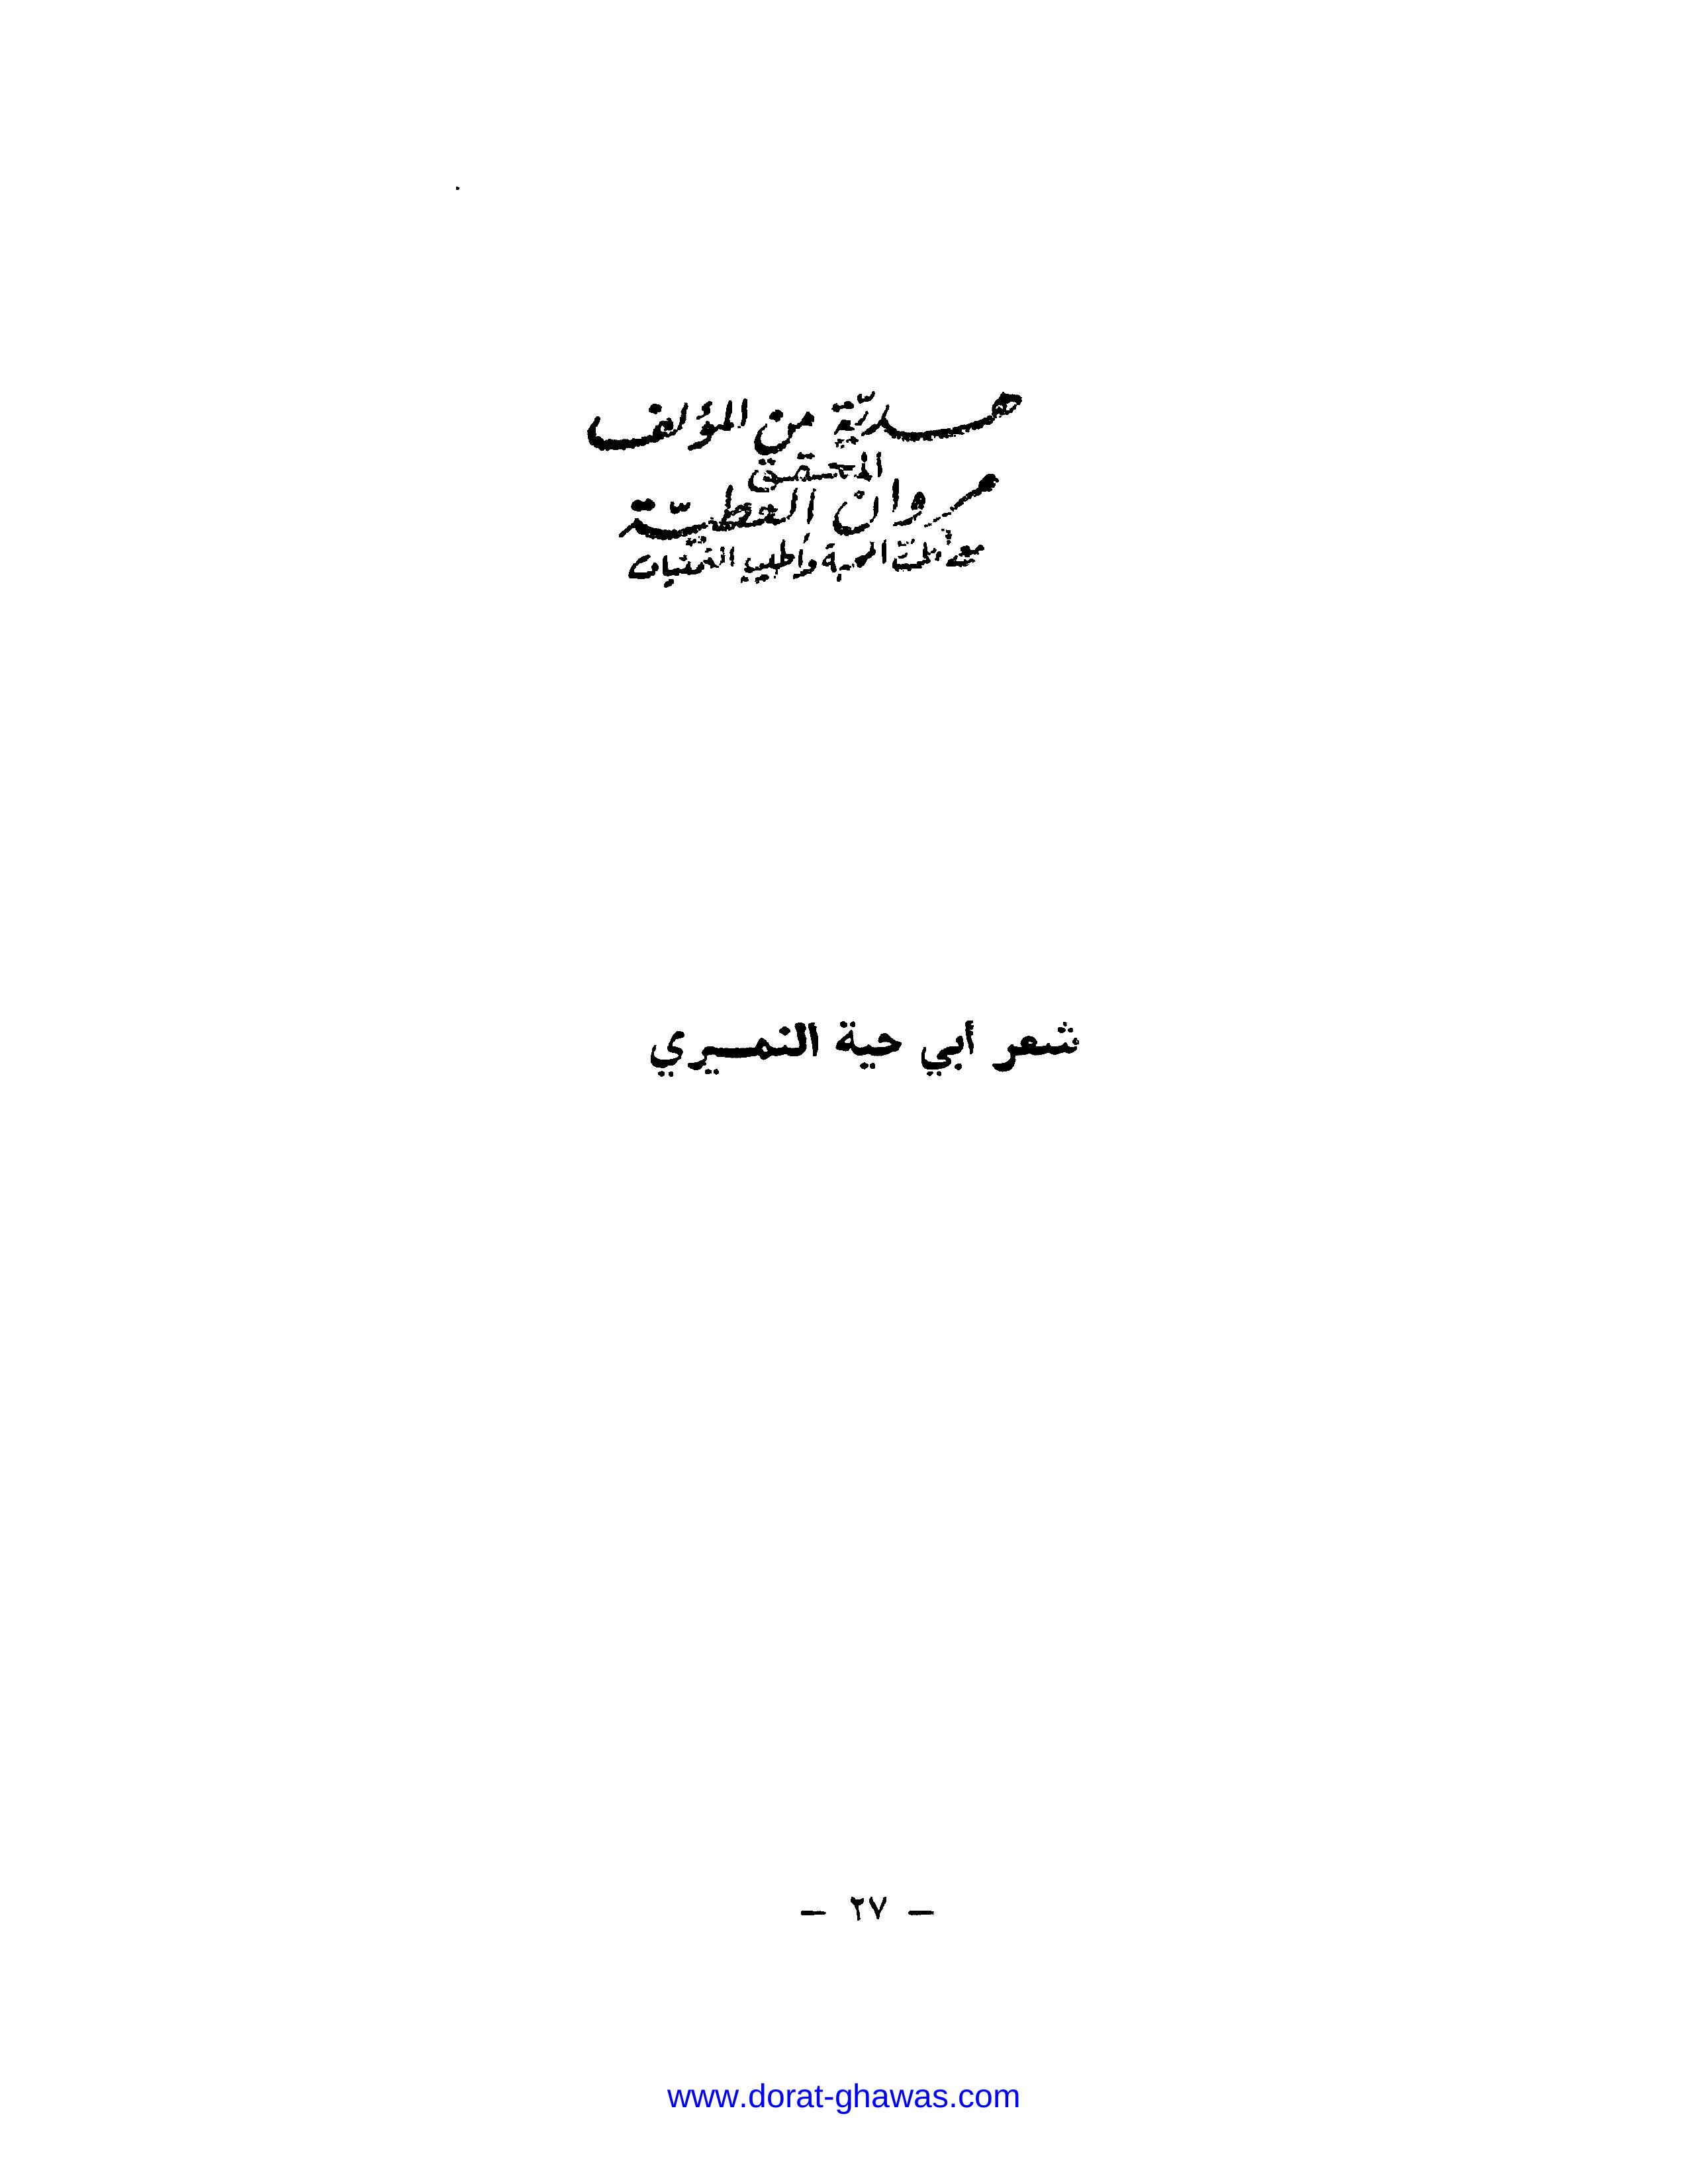 هـديّة من المؤلف
المحقق
مروان العطيّة
مع المحبة وأطيب التمنيات
شعر أبي حية النمـيري
— ٢٧ —
www.dorat-ghawas.com